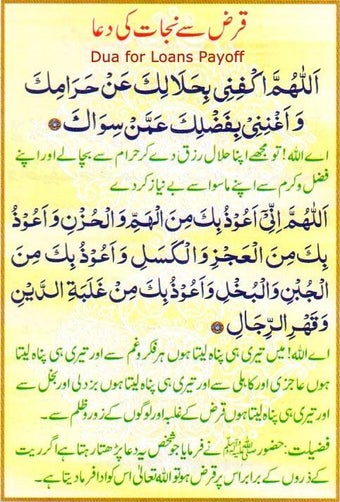 قرض سے نجات کی دعا
Dua for Loans Payoff
اَللّٰهُمَّ اكْفِنِىْ بِحَلَالِكَ عَنْ حَرَامِكَ
وَاَغْنِنِىْ بِفَضْلِكَ عَمَّنْ سِوَاكَ
اے اللہ! تو مجھے اپنا حلال رزق دے کر حرام سے بچالے اور اپنے
فضل و کرم سے اپنے ماسوا سے بے نیاز کر دے
اَللّٰهُمَّ اِنِّىْ اَعُوْذُ بِكَ مِنَ الْهَمِّ وَالْحُزْنِ وَاَعُوْذُ
بِكَ مِنَ الْعَجْزِ وَالْكَسَلِ وَاَعُوْذُ بِكَ مِنَ
الْجُبْنِ وَالْبُخْلِ وَاَعُوْذُ بِكَ مِنْ غَلَبَةِ الدَّيْنِ
وَقَهْرِ الرِّجَالِ
اے اللہ! میں تیری ہی پناہ لیتا ہوں ہر فکر و غم سے اور تیری ہی پناہ لیتا
ہوں عاجزی اور کاہلی سے اور تیری ہی پناہ لیتا ہوں بزدلی اور بخل سے
اور تیری ہی پناہ لیتا ہوں قرض کے غلبہ اور لوگوں کے زور و ظلم سے۔
فضیلت: حضور ﷺ نے فرمایا جو شخص یہ دعا پڑھتا رہتا ہے اگر ریت
کے ذروں کے برابر اس پر قرض ہو تو اللہ تعالیٰ اس کو ادا فرما دیتا ہے۔